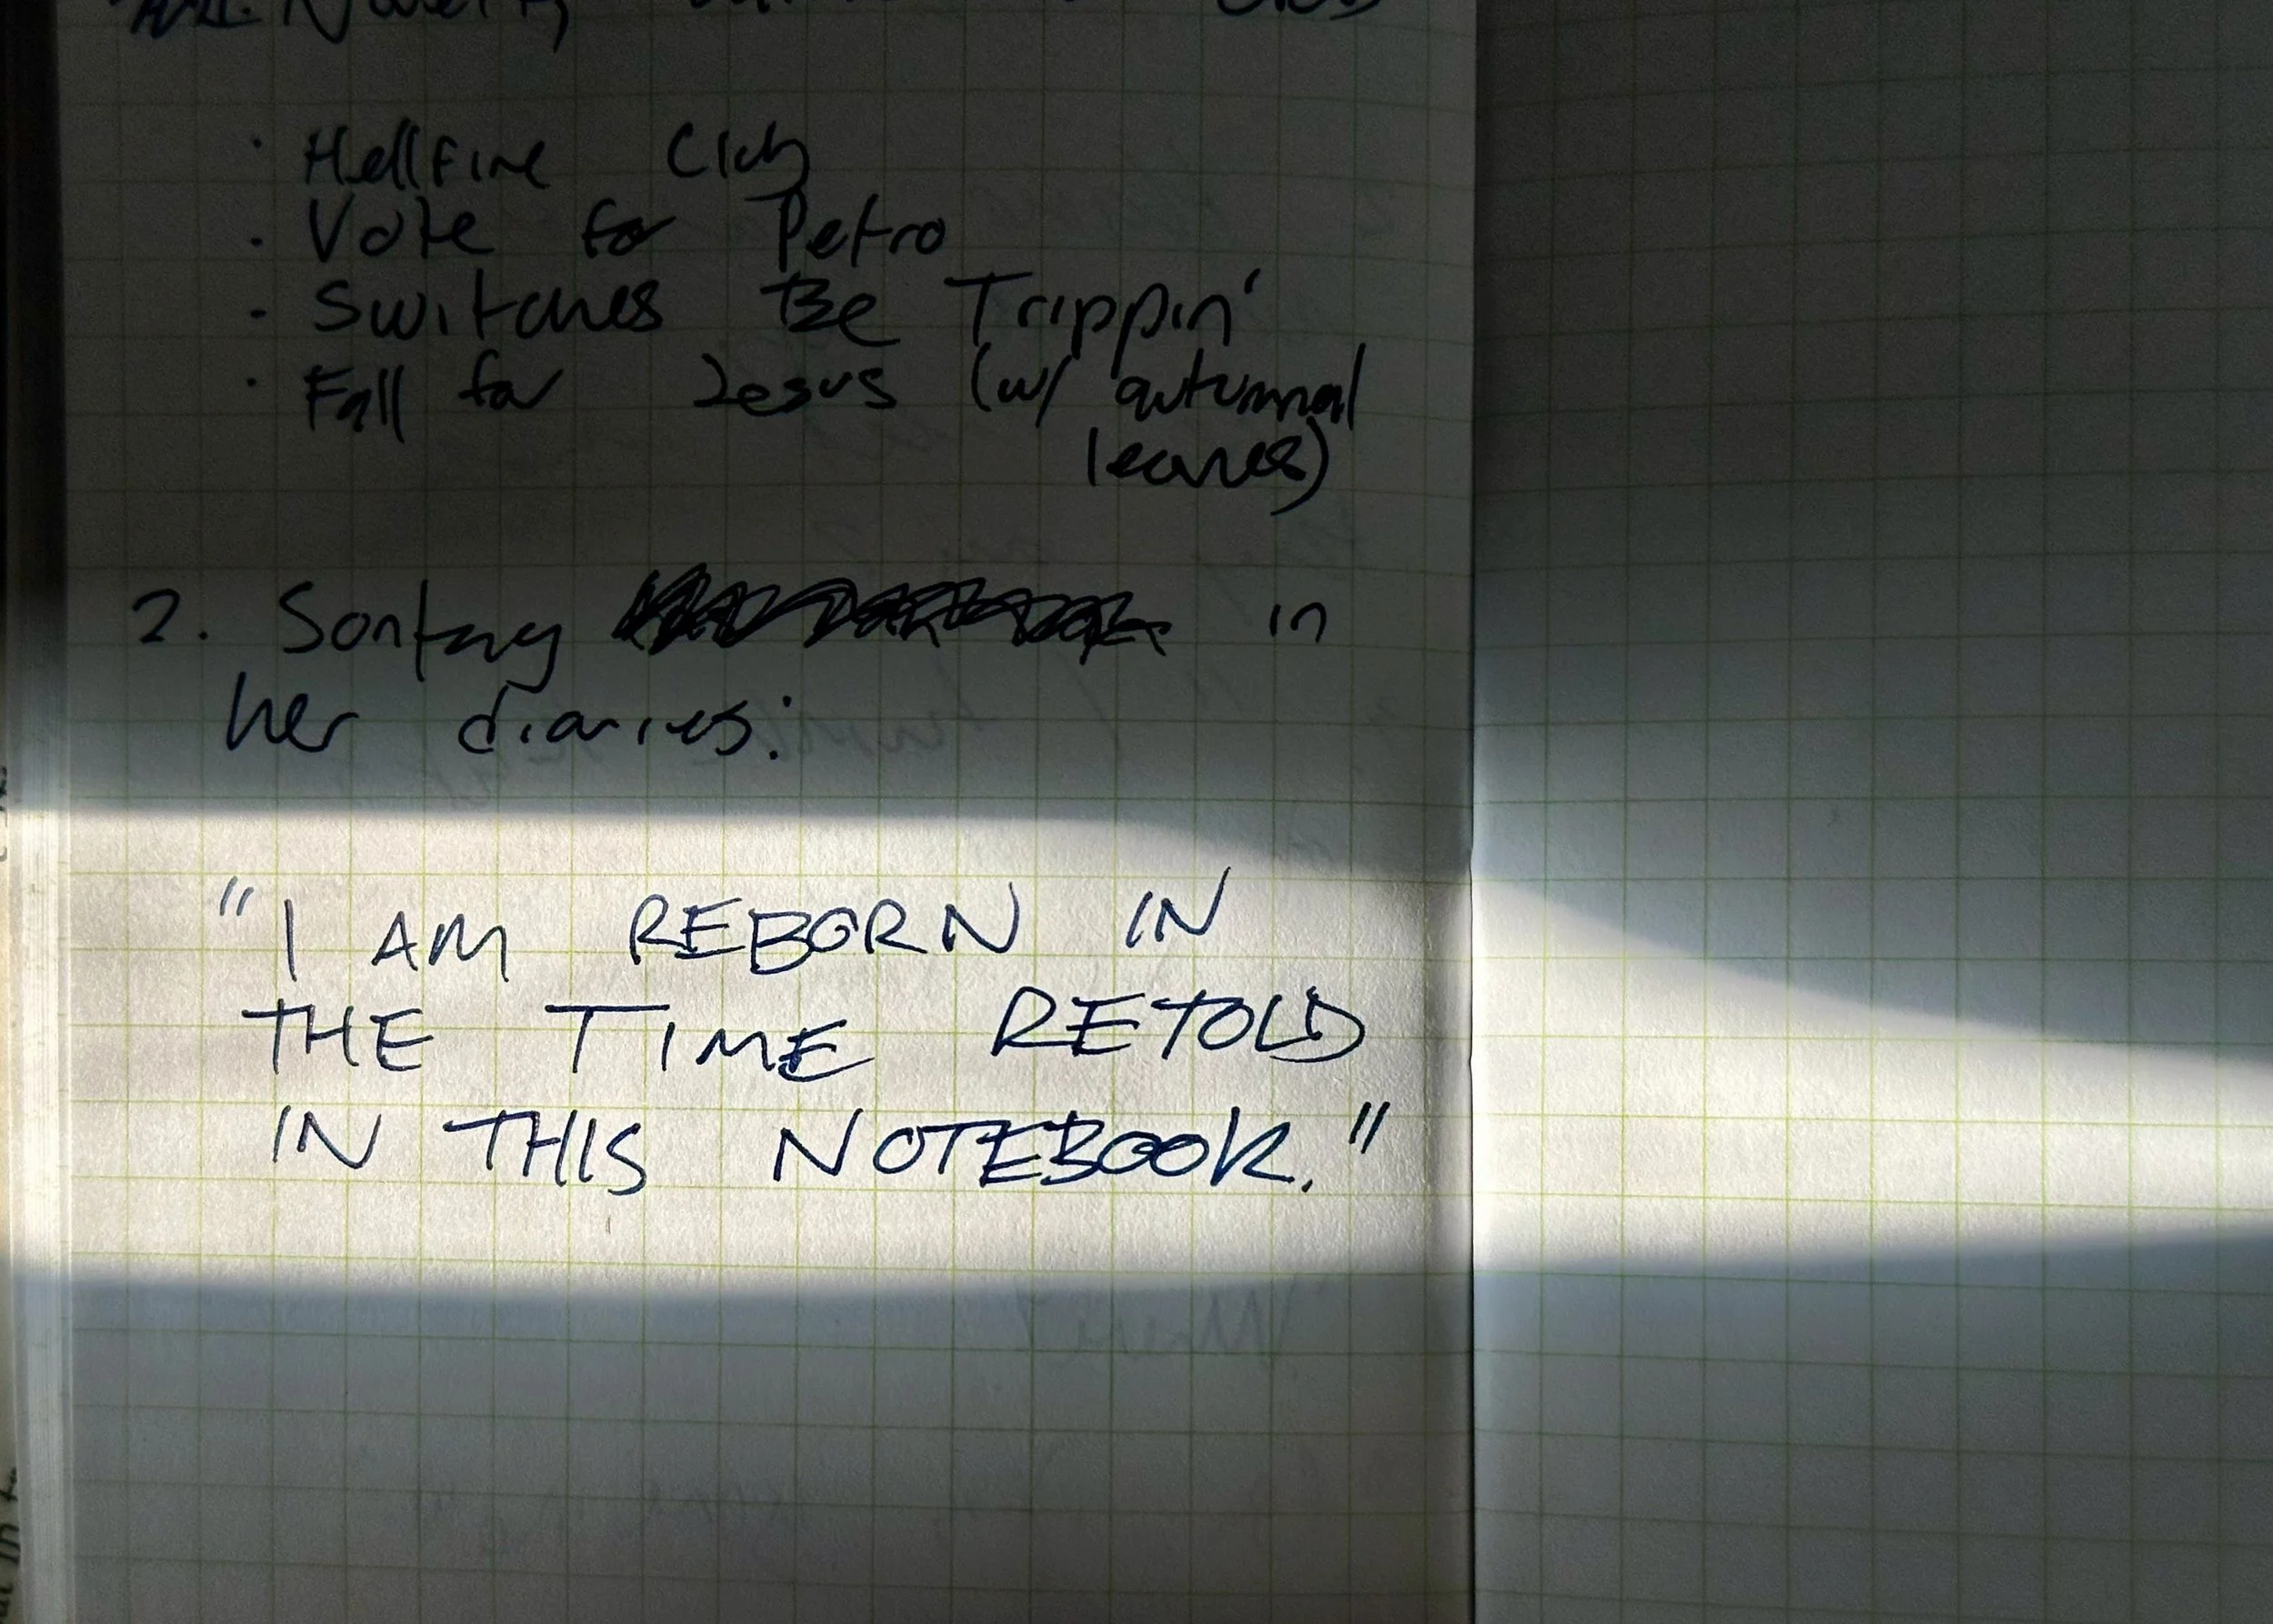 · Hellfire Club
· Vote for Petro
· Switches Be Trippin'
· Fall for Jesus (w/ autumnal
leaves)
2. Sontag in
her diaries:
"I AM REBORN IN
THE TIME RETOLD
IN THIS NOTEBOOK."